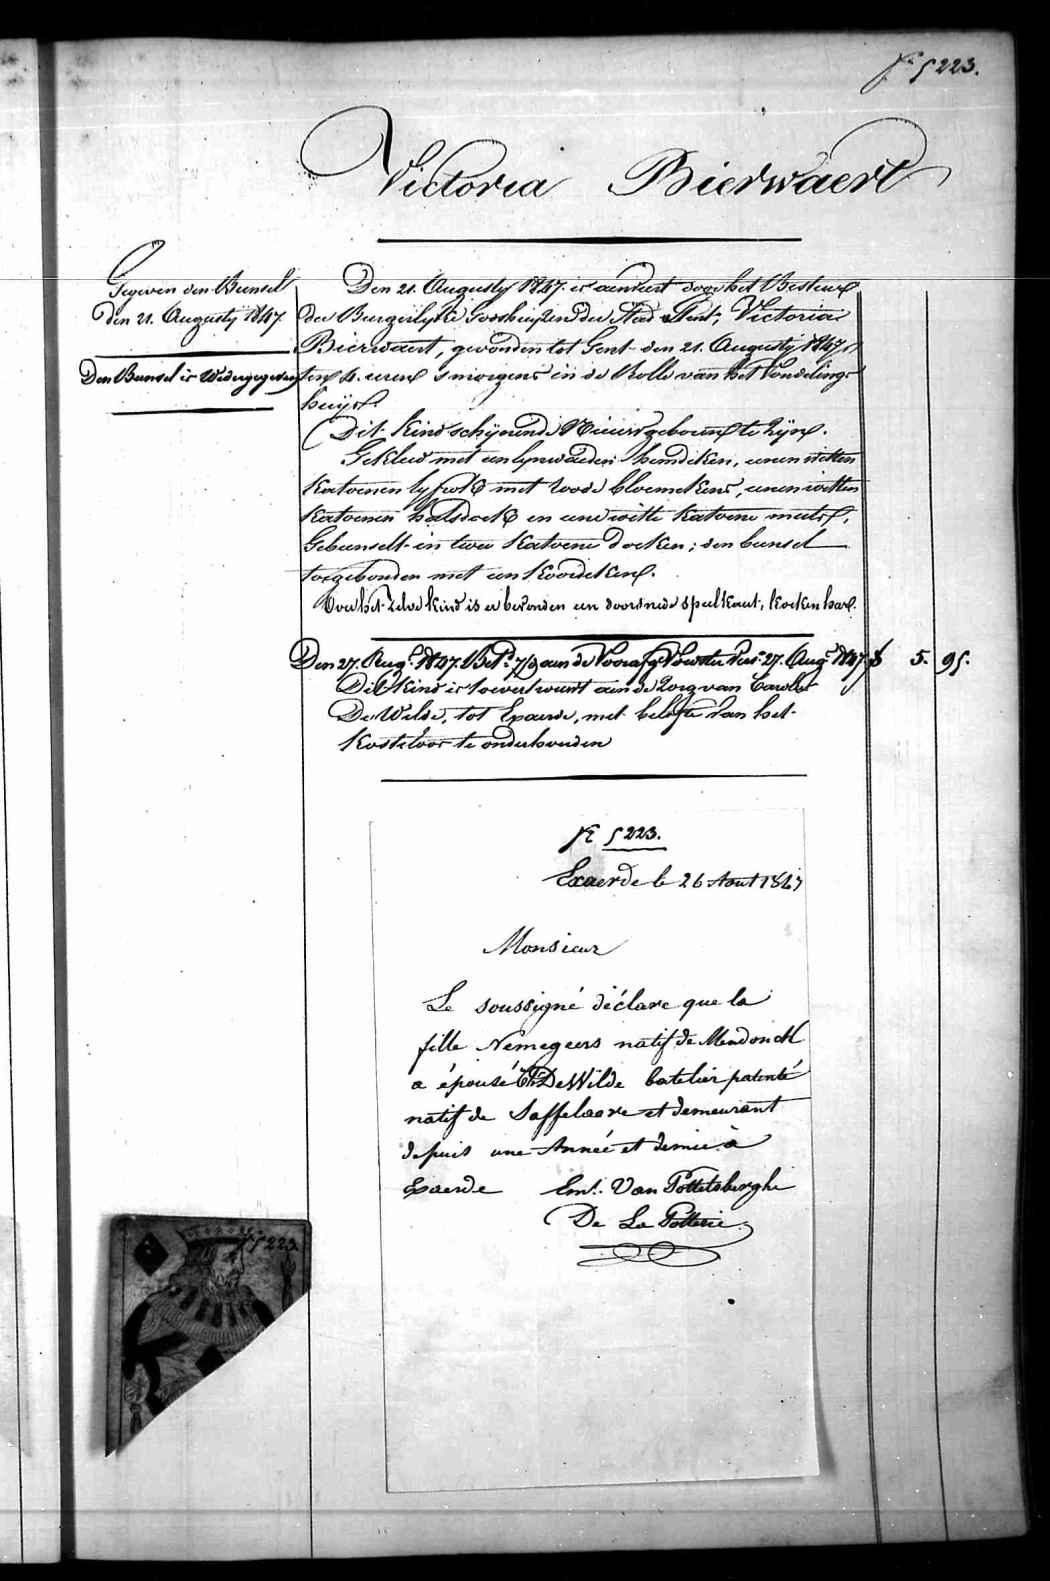 5223.
Victoria Bierwaert
Gegeven den Bunsel
den 21. Augusty 1847.
Den Bunsel is Wedergegeven
Den 21. Augusty 1847. is aenveert door het Bestuur
der Burgerlyke Godshuyzen der Stad Gent, Victoria
Bierwaert, gevonden tot Gent den 21. Augusty 1847,
ten 4. uren s'morgens in de Rolle van het Vondelings
huys.
Dit kind schynende Nieuwgeboren te zyn.
Gekleed met een lynwaeden hemdeken, eenen witten
katoenen lyfrok met roode bloemekens, eenen witten
katoenen halsdoek en eene witte katoene muts,
Gebunselt in twee katoene doeken; den bunsel
toegebonden met een koordeken.
Over het zelve kind is er bevonden een doorsnede speelkaert, koeken
Den 27. Augt. 1847. Bet. aen de Voorsz. 27. Augt. 1847 5. 95.
Dit kind is toevertrouwt aen de zorg van Carolus
De Wilde, tot Exaerde, met belofte van het
kosteloos te onderhouden
5223.
Exaerde le 26 Aout 1847
Monsieur
Le soussigné déclare que la
fille Nemegeers natif de Mendonck
a épousé DeWilde batelier patenté
natif de Saffelaere et demeurant
depuis une Année et demie à
Exaerde Em. Van Pottelsberghe
De La Potterie
5223